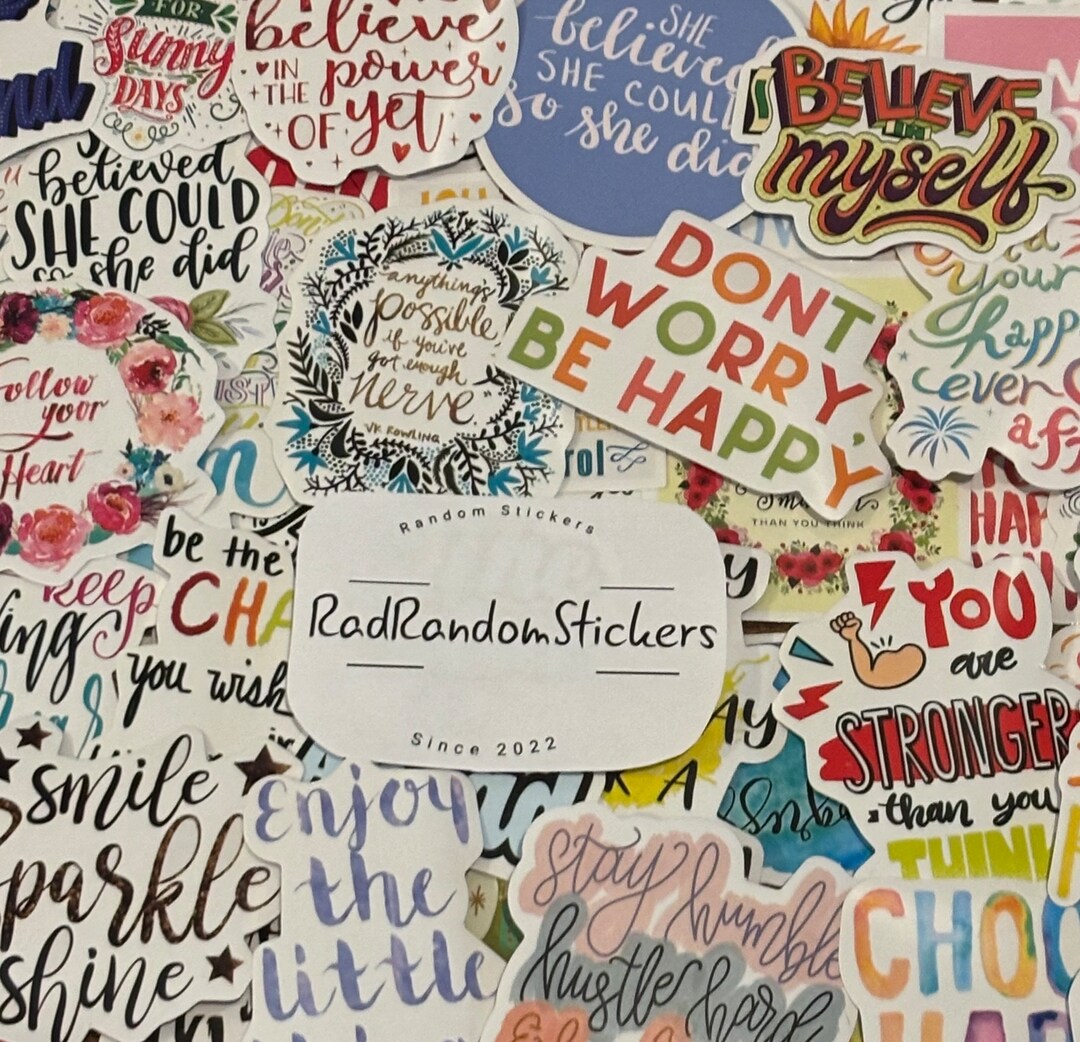 FOR
Sunny
DAYS
believe
IN THE power
OF yet
SHE
believed
SHE COULD
so she did
BELIEVE
IN
myself
believed
SHE COULD
so she did
DONT
WORRY,
BE HAPPY
anything's
possible
if you've
got enough
nerve
your
happ
ever
aft
Follow
your
Heart
rol
THAN YOU THINK
HAP
be the
CHA
you wish
Random Stickers
RadRandomStickers
Since 2022
keep
ing
YOU
are
STRONGER
than you
THINK
smile
sparkle
shine
Enjoy
the
little
stay humble
hustle hard
CHOO
HAP